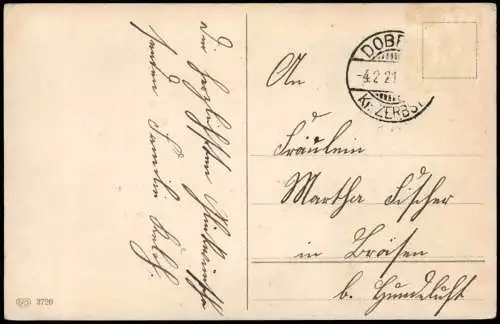 Die herzlichsten Glückwünsche
senden Familie
DOBE
-4.2.21
Kr. ZERBST
An
Fräulein
Martha Fischer
in Bräsen
b. Hundeluft
3720